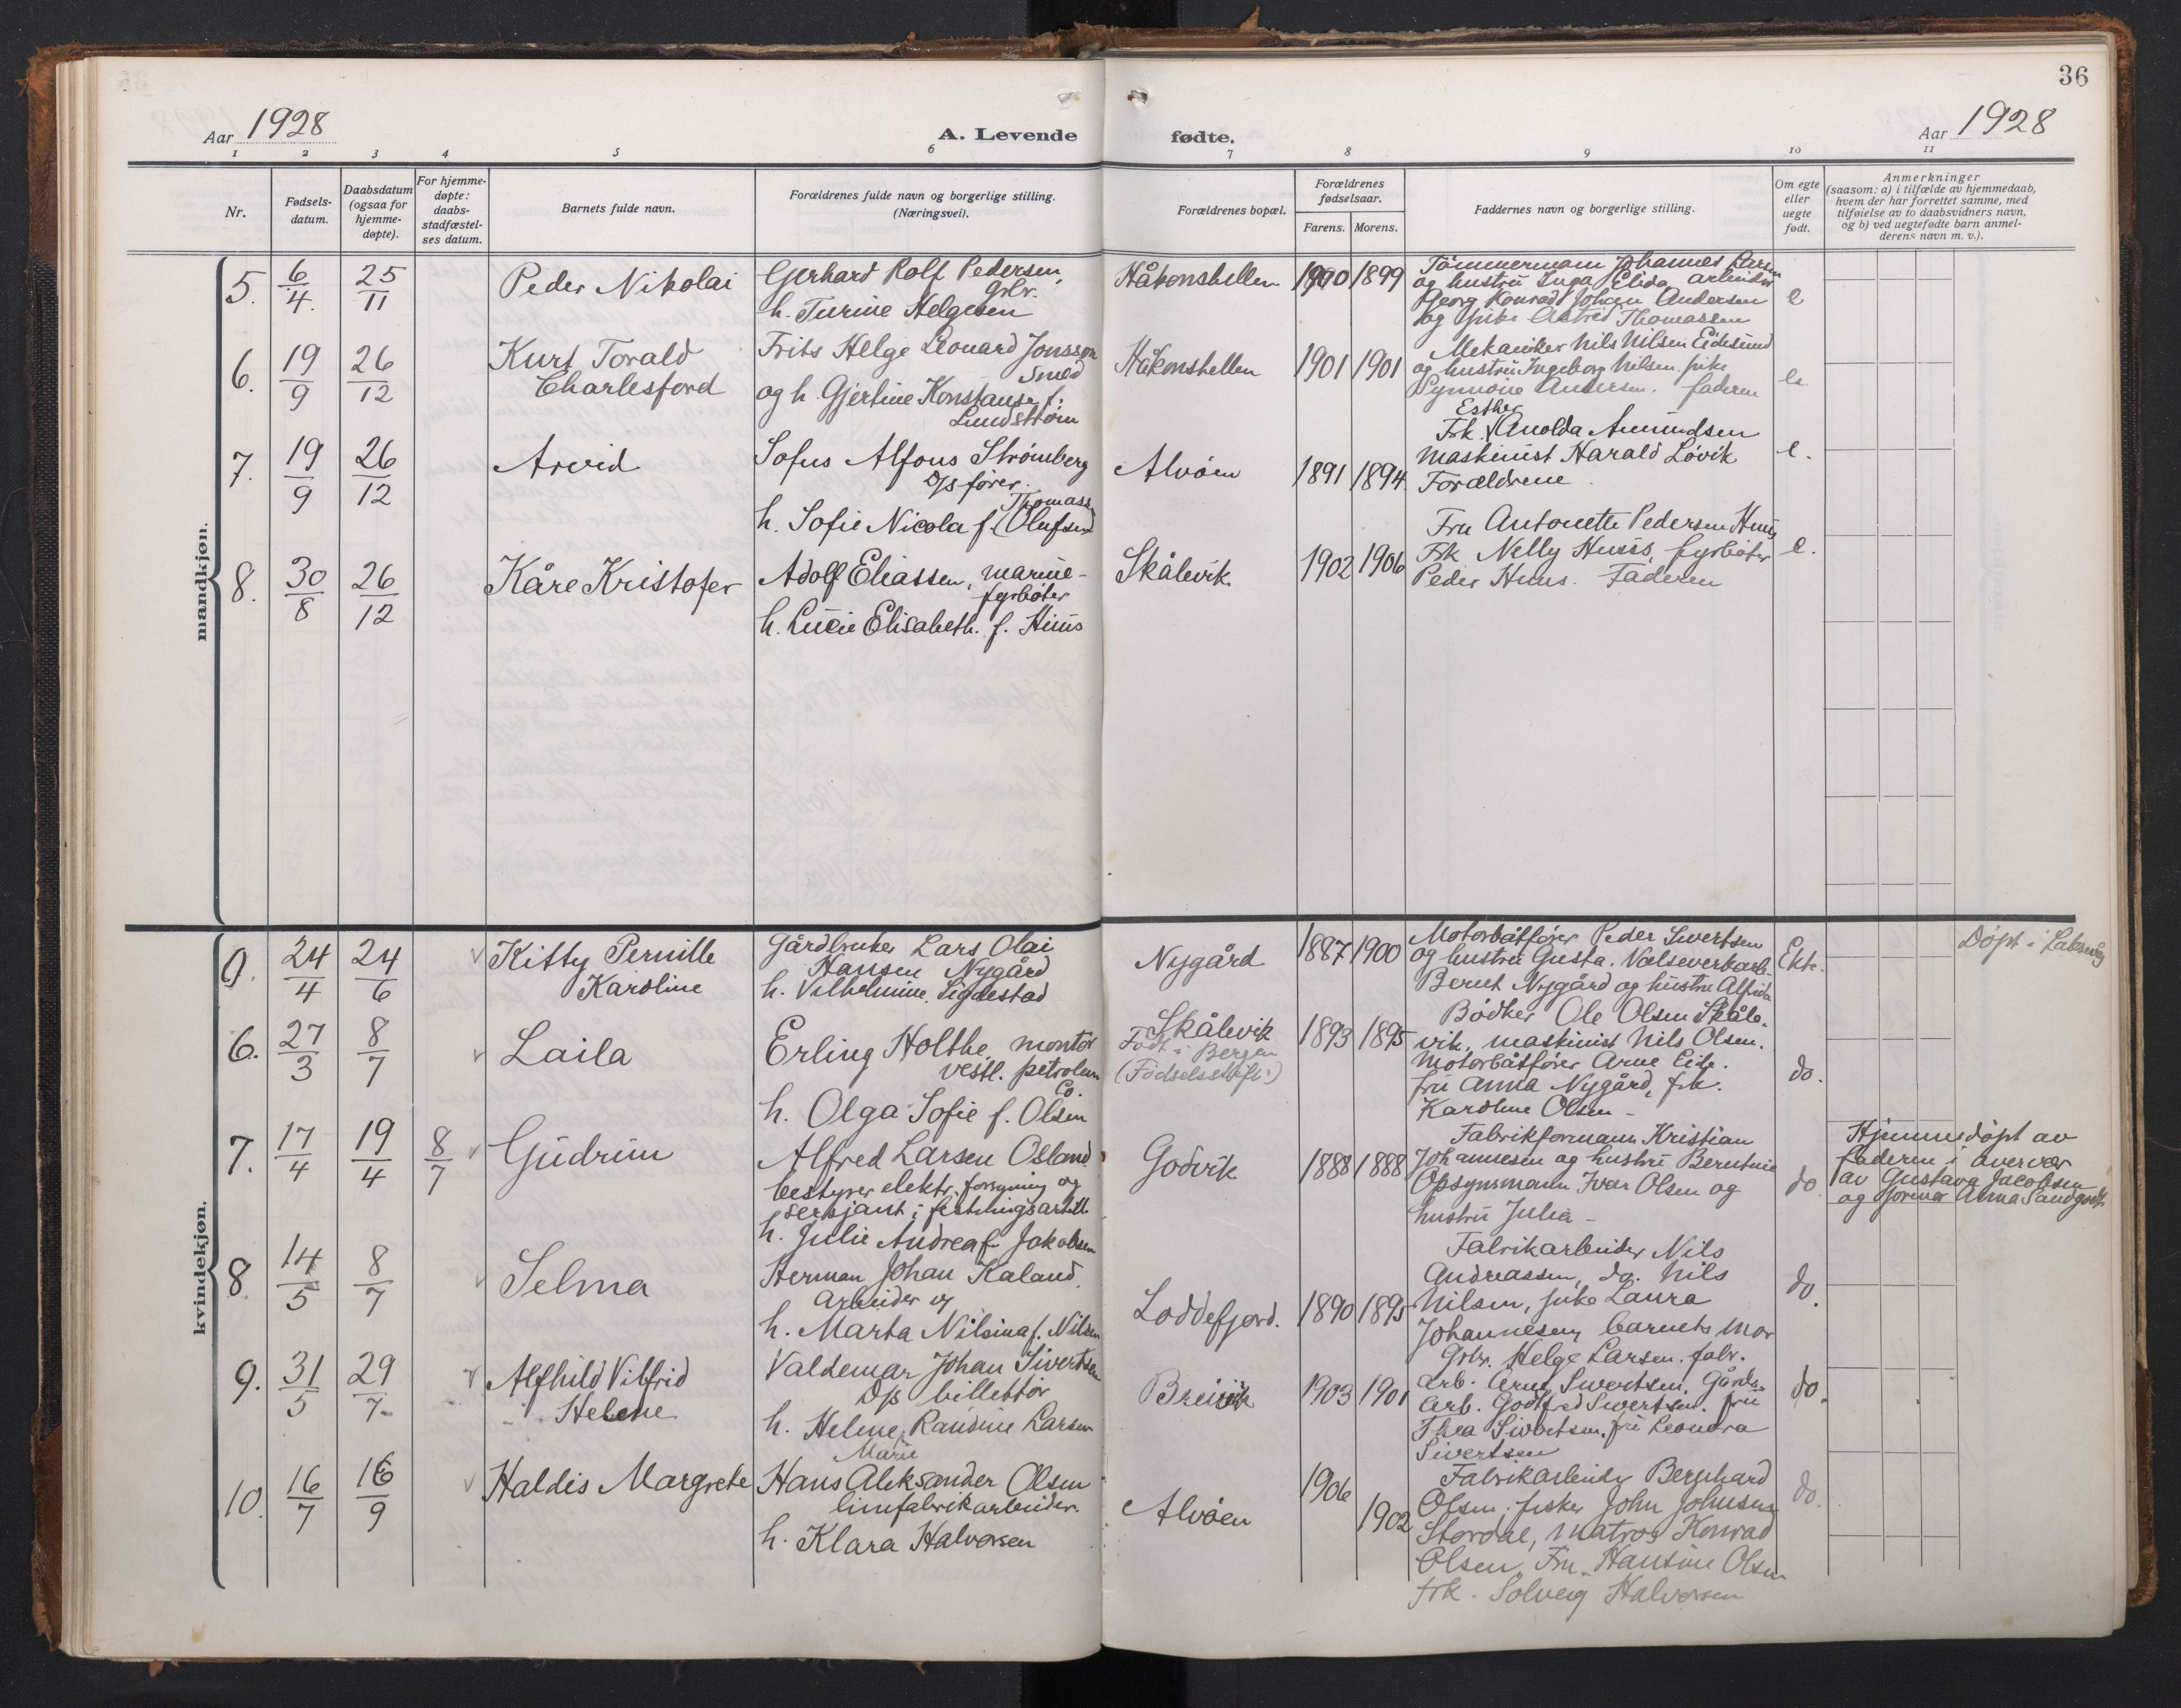 36
Aar 1928
A. Levende fødte.
Aar 1928
1 2 3 4 5 6 7 8 9 10 11
Nr.
Fødsels-
datum.
Daabsdatum
(ogsaa for
hjemme-
døpte).
For hjemme-
døpte:
daabs-
stadfæstel-
ses datum.
Barnets fulde navn.
Forældrenes fulde navn og borgerlige stilling.
(Næringsvei).
Forældrenes bopæl.
Forældrenes
fødselsaar.
Farens. Morens.
Faddernes navn og borgerlige stilling.
Om egte
eller
uegte
født.
Anmerkninger
(saasom: a) i tilfælde av hjemmedaab,
hvem der har forrettet samme, med
tilføielse av to daabsvidners navn,
og b) ved uegtefødte barn anmel-
derens navn m. v.).
mandkjøn.
5.
6/4.
25/11
Peder Nikolai
Gerhard Rolf Pedersen,
grbr.
h. Turine Helgesen
Håkonshellen
1900
1899
Tömmermann Johannes Larsen
og hustru Inga Elida, arbeider
Georg Konrad Johan Andersen
og pike Astrid Thomassen
e
6.
19/9
26/12
Kurt Torald
Charlesford
Frits Helge Leonard Jonsson
Smed
og h. Gjertine Konstanse f.
Lundström
Håkonshellen
1901
1901
Mekaniker Nils Nilsen Eidesund
og hustru Ingeborg Nilsen, pike
Synnöve Andersen. faderen
e.
7.
19/9
26/12
Arvid
Sofus Alfons Strömberg
D/s fører.
h. Sofie Nicola f. (Olufsen
Alvöen
1891
1894.
Esther
Frk. Anolda Amundsen
Maskinist Harald Lövik
Forældrene
e.
8.
30/8
26/12
Kåre Kristofer
Adolf Eliassen, marine-
fyrböter
h. Lucie Elisabeth. f. Huus
Skålevik
1902
1906
Fru Antonette Pedersen Huus
Frk Nelly Huus, fyrböter
Peder Huus. Faderen
e.
kvindekjøn.
24/4
24/6
Kitty Pernille
Karoline
Gårdbruker Lars Olai
Hansen Nygård
h. Vilhelmine Sigdestad
Nygård
1887
1900
Motorbåtfører Peder Sivertsen
og hustru Gusta.
Bernt Nygård og hustru Alfrida
Ekte.
Döpt i Laksevåg
6.
27/3
8/7
Laila
Erling Holthe, montör
vestl. petroleum
Co.
h. Olga Sofie f. Olsen
Skålevik
Födt i Bergen
(Födselsstift.)
1893
1895
Bödker Ole Olsen Skåle-
vik, maskinist Nils Olsen.
Motorbåtfører Arne Eide.
fru Anna Nygård, frk.
Karoline Olsen -
do.
7.
17/4
19/4
8/7
Gudrun
Alfred Larsen Osland
bestyrer elektr. forsyning og
sersjant i festningsartill.
h. Julie Andrea f. Jakobsen
Godvik
1888
1888
Fabrikformann Kristian
Johannesen og hustru Berntine
Opsynsmann Ivar Olsen og
hustru Julia -
do
Hjemmedöpt av
faderen i overvær
av Gustava Jacobsen
og Anna
8.
14/5
8/7
Selma
Herman Johan Kaland,
Arbeider og
h. Marta Nilsina f. Nilsen
Loddefjord.
1890
1895
Fabrikarbeider Nils
Andreassen, do. Nils
Nilsen, pike Laura
Johannesen, barnets mor
do.
9.
31/5
29/7
Alfhild Vilfrid
Helene
Valdemar Johan Sivertsen
D/s billettör
h. Helene Marie Randine Larsen
Breivik
1903
1901
Grbr. Helge Larsen. fabr.
arb. Arne Sivertsen. Gårds-
arb. Godtfred Sivertsen. fru
Thea Sivertsen, fru Leonora
Sivertsen
do.
10.
16/7
16/9
Haldis Margrete
Hans Aleksander Olsen
limfabrikarbeider.
h. Klara Halvorsen
Alvöen
1906
1902
Fabrikarbeider Bernhard
Olsen, fisker John Johnsen
Stordal, matros Konrad
Olsen, Fru Hansine Olsen
frk. Solveig Halvorsen
do.